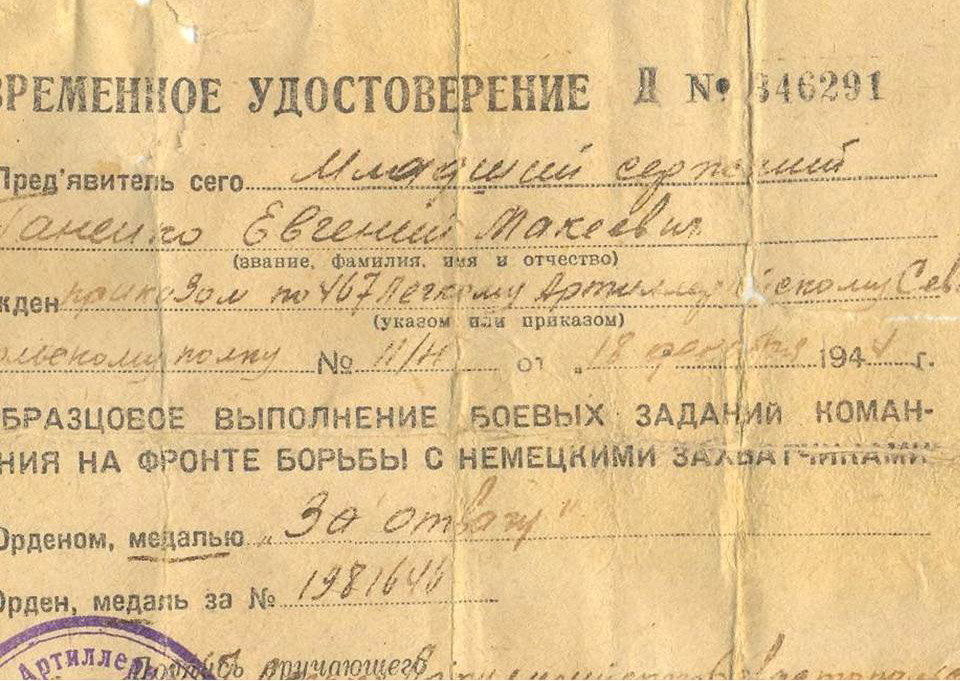 ВРЕМЕННОЕ УДОСТОВЕРЕНИЕ Д № 346291
Пред'явитель сего Младший сержский
Ганенко Евгений Макеевич
(звание, фамилия, имя и отчество)
жден приказом по 467 Легкому Артиллерийскому Сев
польскому полку № 11/Н от „18 1944 г.
ОБРАЗЦОВОЕ ВЫПОЛНЕНИЕ БОЕВЫХ ЗАДАНИЙ КОМАН-
НИЯ НА ФРОНТЕ БОРЬБЫ С НЕМЕЦКИМИ ЗАХВАТЧИКАМИ
Орденом, медалью „За отвагу"
Орден, медаль за № 1981646
Артиллер Подпись вручающего